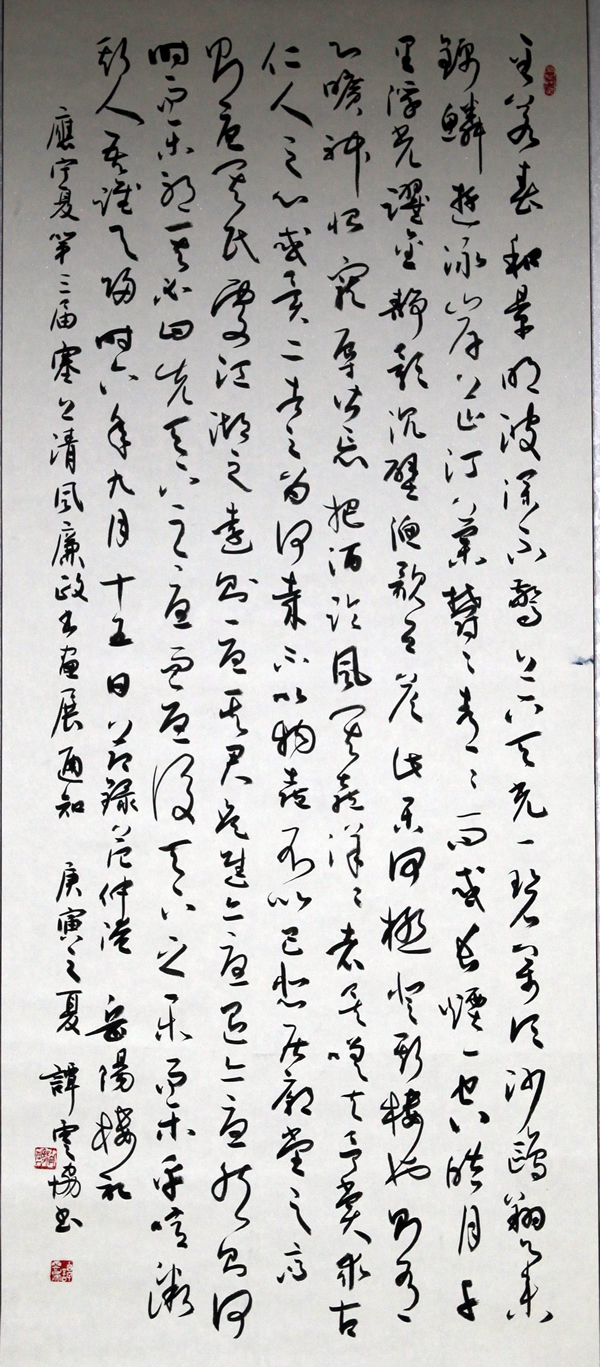 至若春和景明波瀾不驚上下天光一碧萬頃沙鷗翔集
錦鱗遊泳岸芷汀蘭鬱々青々而或長煙一空皓月千
里浮光躍金靜影沉璧漁歌互答此樂何極登斯樓也則有
心曠神怡寵辱皆忘把酒臨風其喜洋々者矣嗟夫予嘗求古
仁人之心或異二者之為何哉不以物喜不以己悲居廟堂之高
則憂其民處江湖之遠則憂其君是進亦憂退亦憂然則何
時而樂耶其必曰先天下之憂而憂後天下之樂而樂乎噫微
斯人吾誰與歸時六年九月十五日 節錄范仲淹 岳陽樓記
應宁夏第三届塞上清風廉政书画展通知 庚寅之夏 譚书